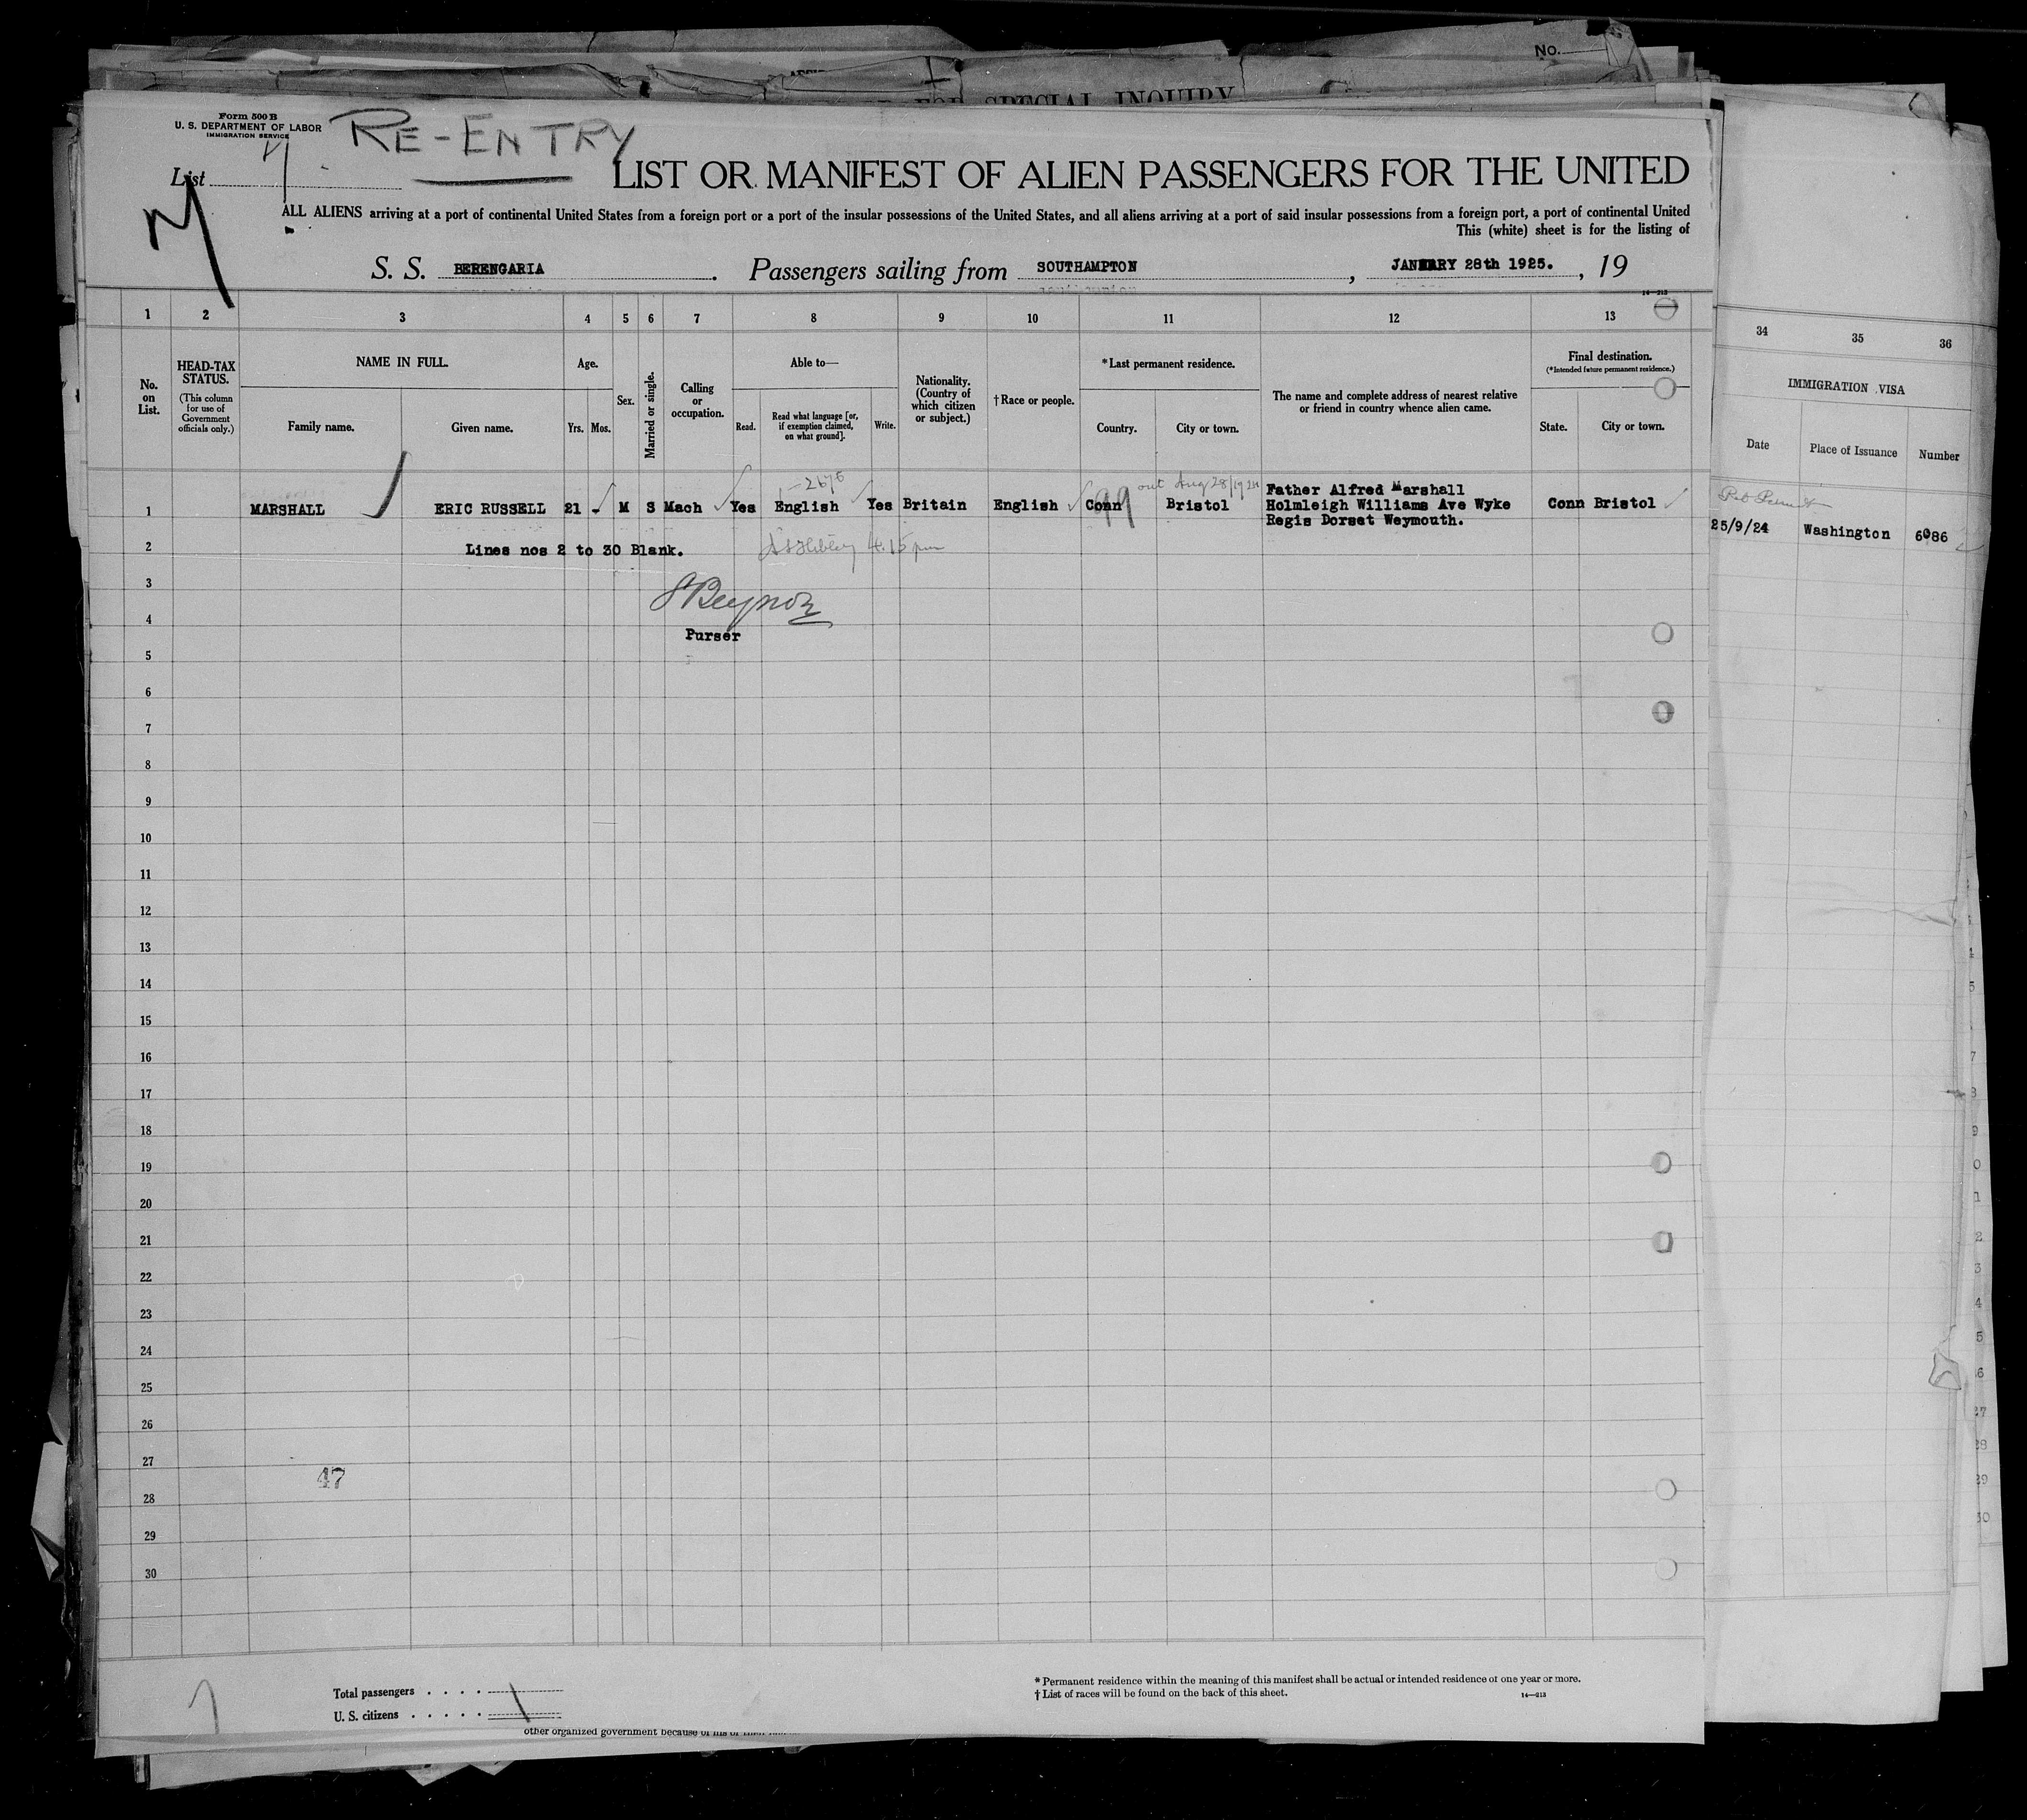 No.
FOR SPECIAL INQUIRY
Form 500 B
U. S. DEPARTMENT OF LABOR
IMMIGRATION SERVICE
RE-ENTRY
List
LIST OR MANIFEST OF ALIEN PASSENGERS FOR THE UNITED
ALL ALIENS arriving at a port of continental United States from a foreign port or a port of the insular possessions of the United States, and all aliens arriving at a port of said insular possessions from a foreign port, a port of continental United
This (white) sheet is for the listing of
S. S. BERENGARIA. Passengers sailing from SOUTHAMPTON, JANUARY 28th 1925., 19
14—213
1 2 3 4 5 6 7 8 9 10 11 12 13 34 35 36
No. on List.
HEAD-TAX STATUS.
(This column for use of Government officials only.)
NAME IN FULL.
Family name. Given name.
Age.
Yrs. Mos.
Sex.
Married or single.
Calling or occupation.
Able to—
Read. Read what language [or, if exemption claimed, on what ground]. Write.
Nationality. (Country of which citizen or subject.)
†Race or people.
*Last permanent residence.
Country. City or town.
The name and complete address of nearest relative or friend in country whence alien came.
Final destination.
(*Intended future permanent residence.)
State. City or town.
IMMIGRATION VISA
Date Place of Issuance Number
out Aug 28/1924
1 MARSHALL ERIC RUSSELL 21 - M S Mach Yes English Yes Britain English Conn Bristol
99
Father Alfred Marshall
Holmleigh Williams Ave Wyke
Regis Dorset Weymouth.
Conn Bristol
25/9/24 Washington 6086
2 Lines nos 2 to 30 Blank. 4.15 pm
3
Beynon
4
Purser
5
6
7
8
9
10
11
12
13
14
15
16
17
18
19
20
21
22
23
24
25
26
27
47
28
29
30
Total passengers . . . . 1
U. S. citizens . . . . .
* Permanent residence within the meaning of this manifest shall be actual or intended residence of one year or more.
† List of races will be found on the back of this sheet.
14—213
other organized government because of his or their